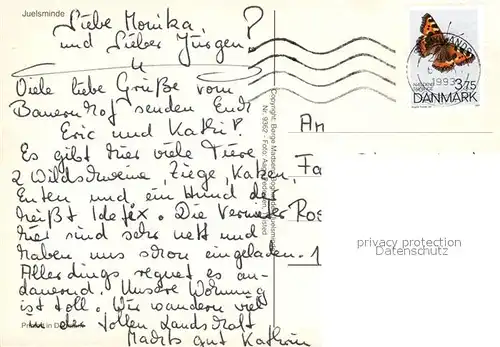 Juelsminde
Liebe Monika,
und lieber Jürgen?
Viele liebe Grüße vom
Bauernhof senden Euch
Eric und Kathi!
Es gibt hier viele Tiere
2 Wildschweine, Ziege, Katzen,
Enten und ein Hund der
heißt Idefix. Die Vermieter
hier sind sehr nett und
haben uns schon eingeladen.
Allerdings regnet es an-
dauernd. Unsere Wohnung
ist toll. Wir wandern viel
in der tollen Landschaft
Machts gut Kathrin
Printed in
Copyright Børge Madsen
Nr. 9362 - Foto:
1993
3.75
DANMARK
An
Fa
Ros
1
privacy protection
Datenschutz